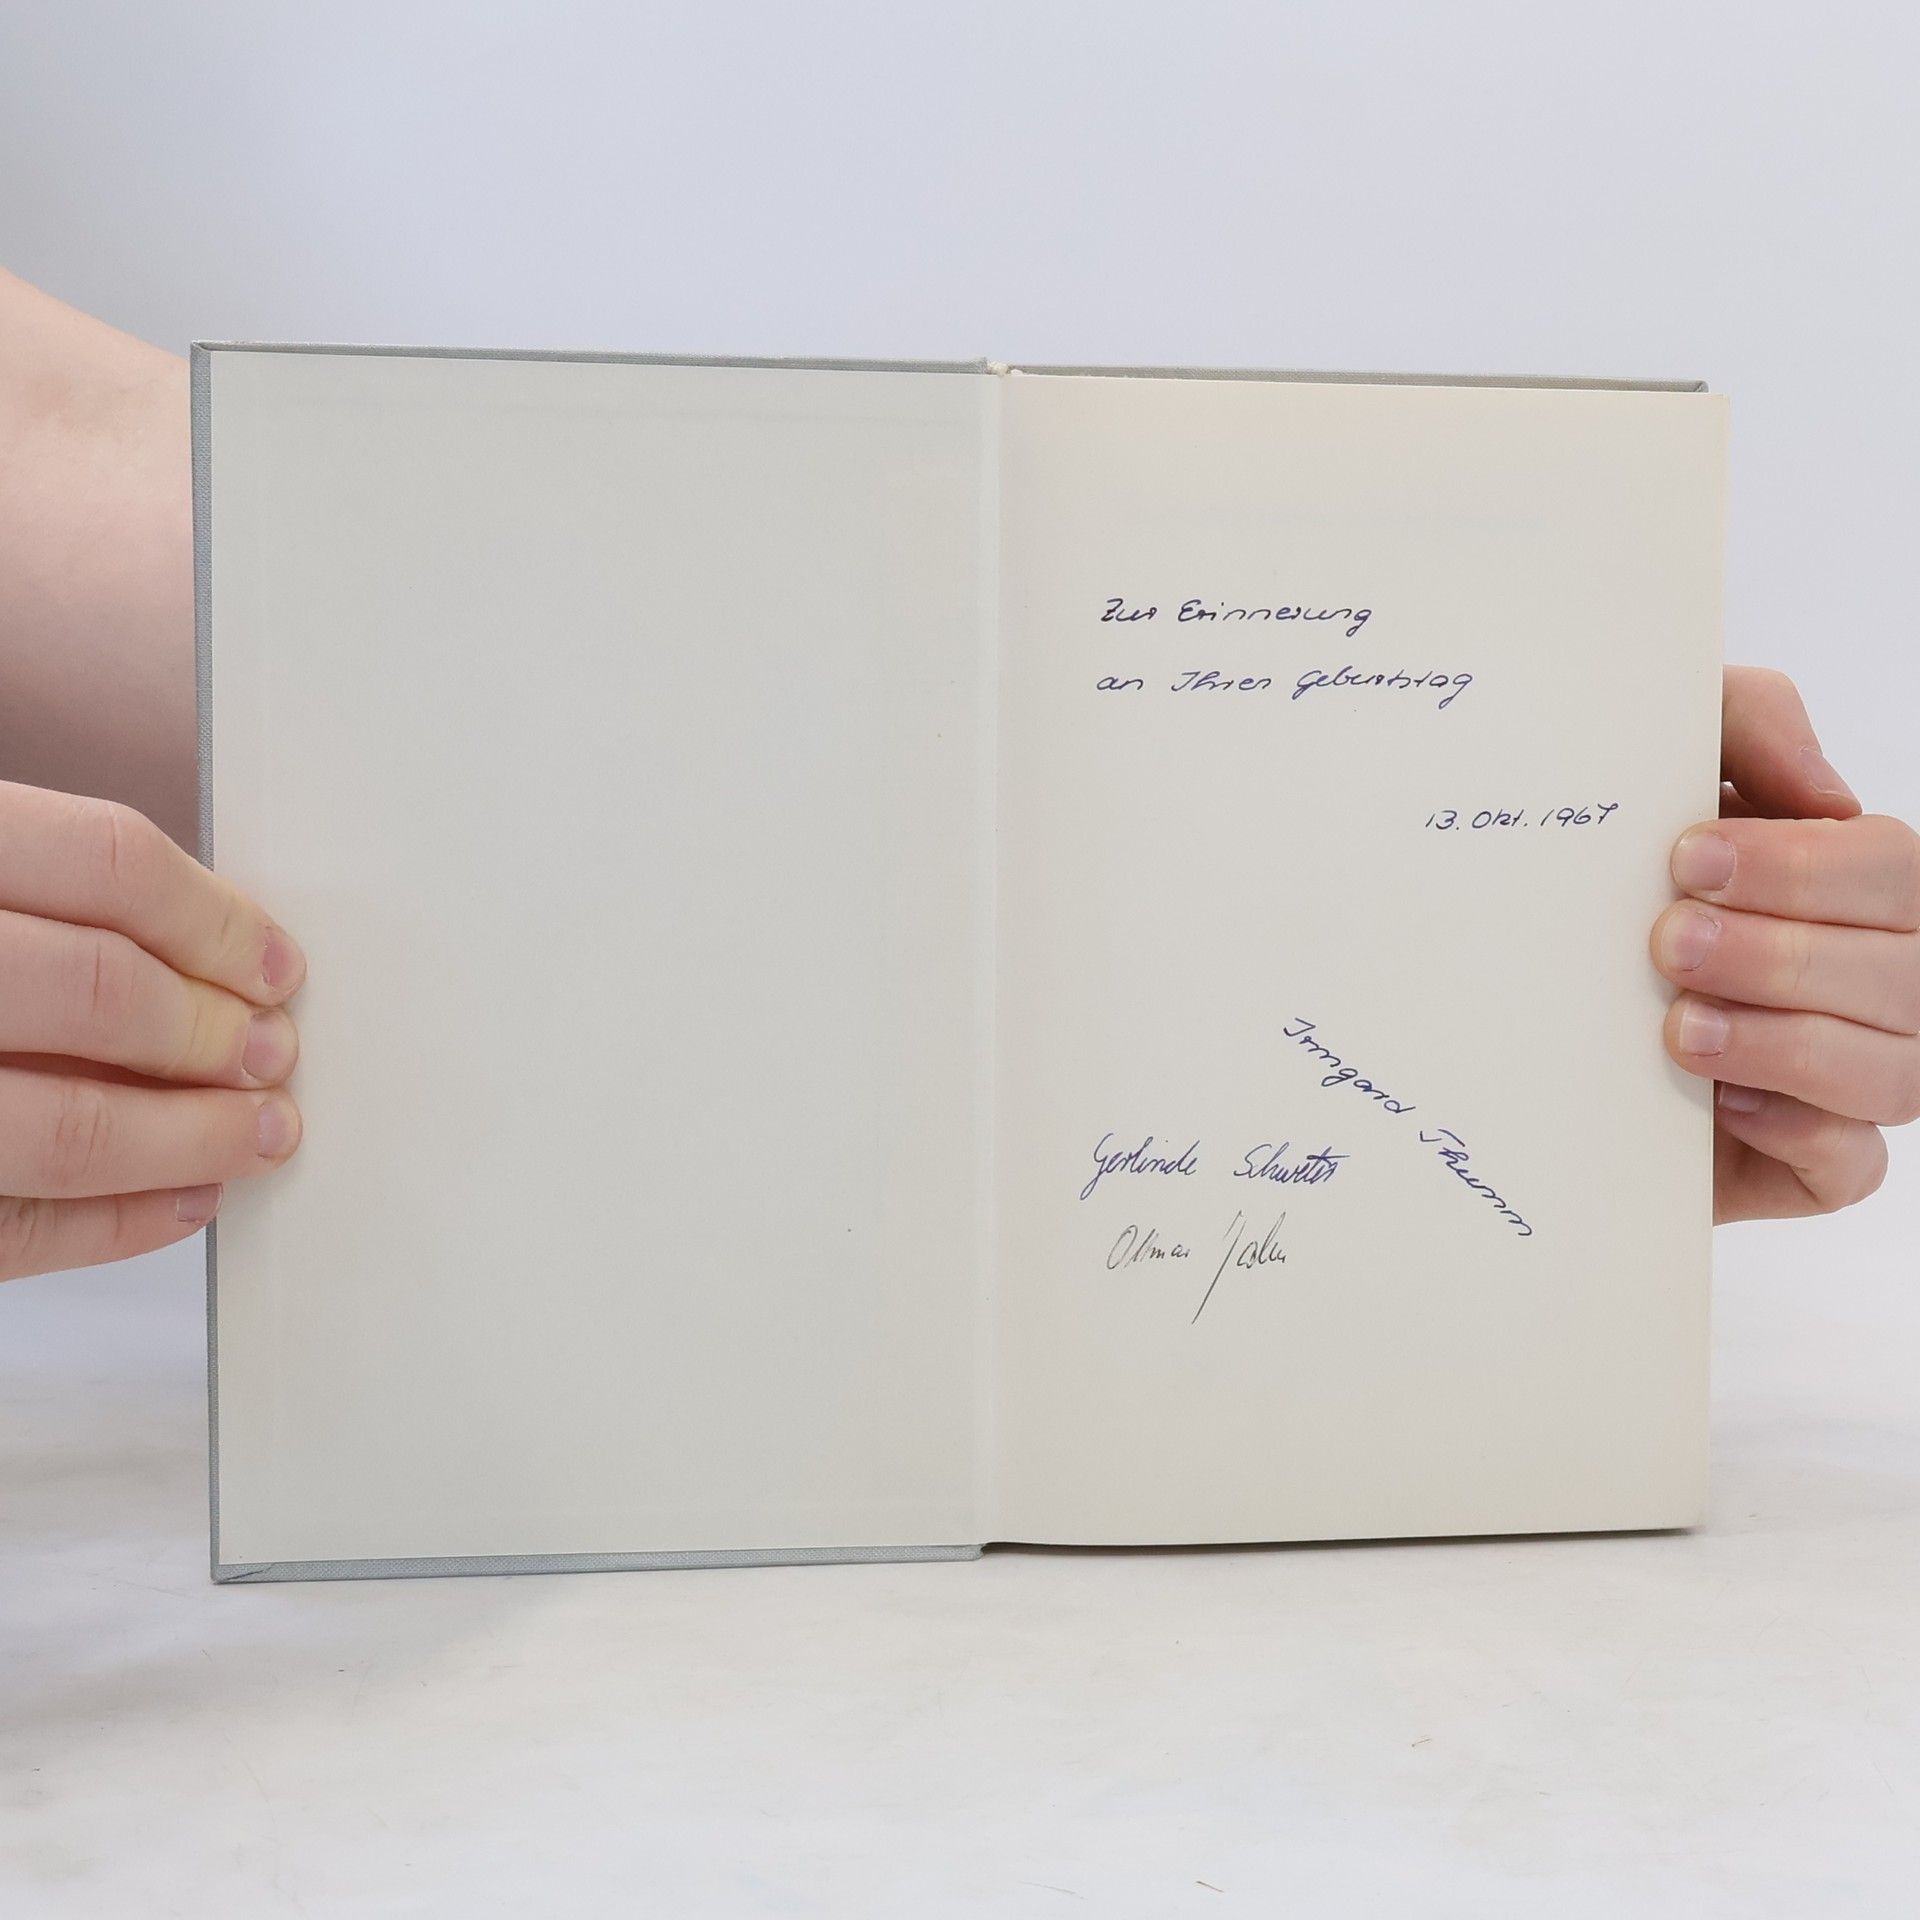 Zur Erinnerung
an Ihren Geburtstag
13. Okt. 1967
Irmgard Thumm
Gerlinde
Ottmar